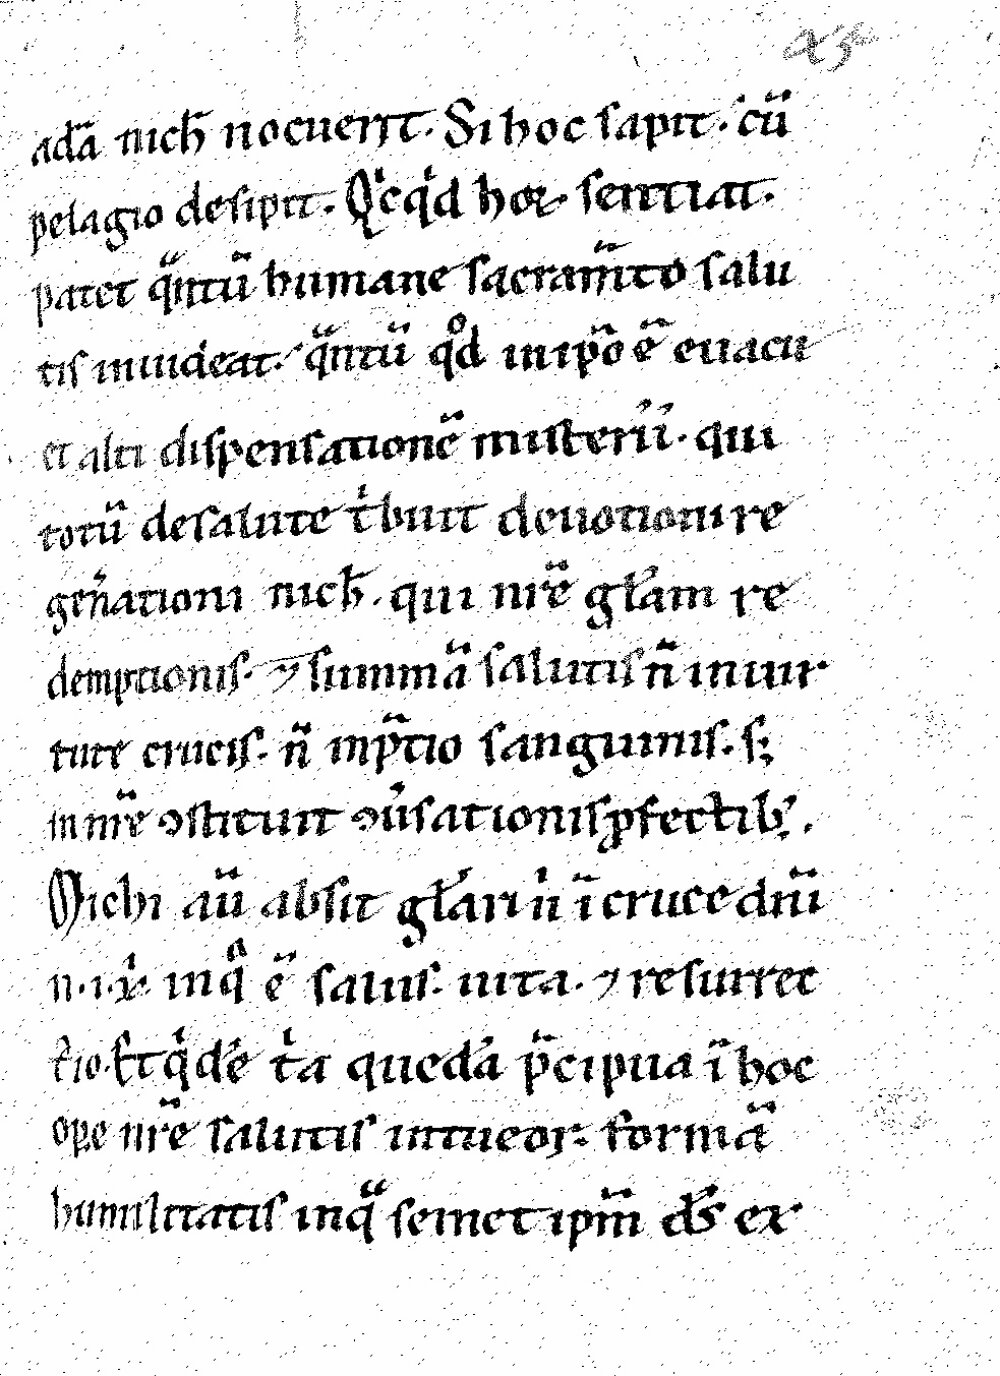 adā nich̄ nocuerit. Si hoc sapit. cū
pelagio desipit. Qͥcqͥd hoꝝ sentiat.
patet qͣntū humane sacram̄to salu
tis inuideat. qͣntū qͦd in ip̄o ē euacu
et alti dispensationē misterii. qui
totū de salute tͥbuit deuotioni re
gen̄ationi nich̄. qui nr̄e gl̄am re
demptionis. ⁊ summā salutis n̄ in uir
tute crucis. n̄ in p̄tio sanguinis. s;
in nr̄e ꝯstituit ꝯū̄sationis ꝓfectib;.
Michi aū absit gl̄ari n̄ ī cruce dn̄i
n. i. x̄. in qͣ ē salus. uita. ⁊ resurrec
tio. Et qͥdē tͥa quedā p̄cipua ī hoc
ope nr̄e salutis intueor. formā
humilitatis in qͣ semet ipm̄ ds̄ ex